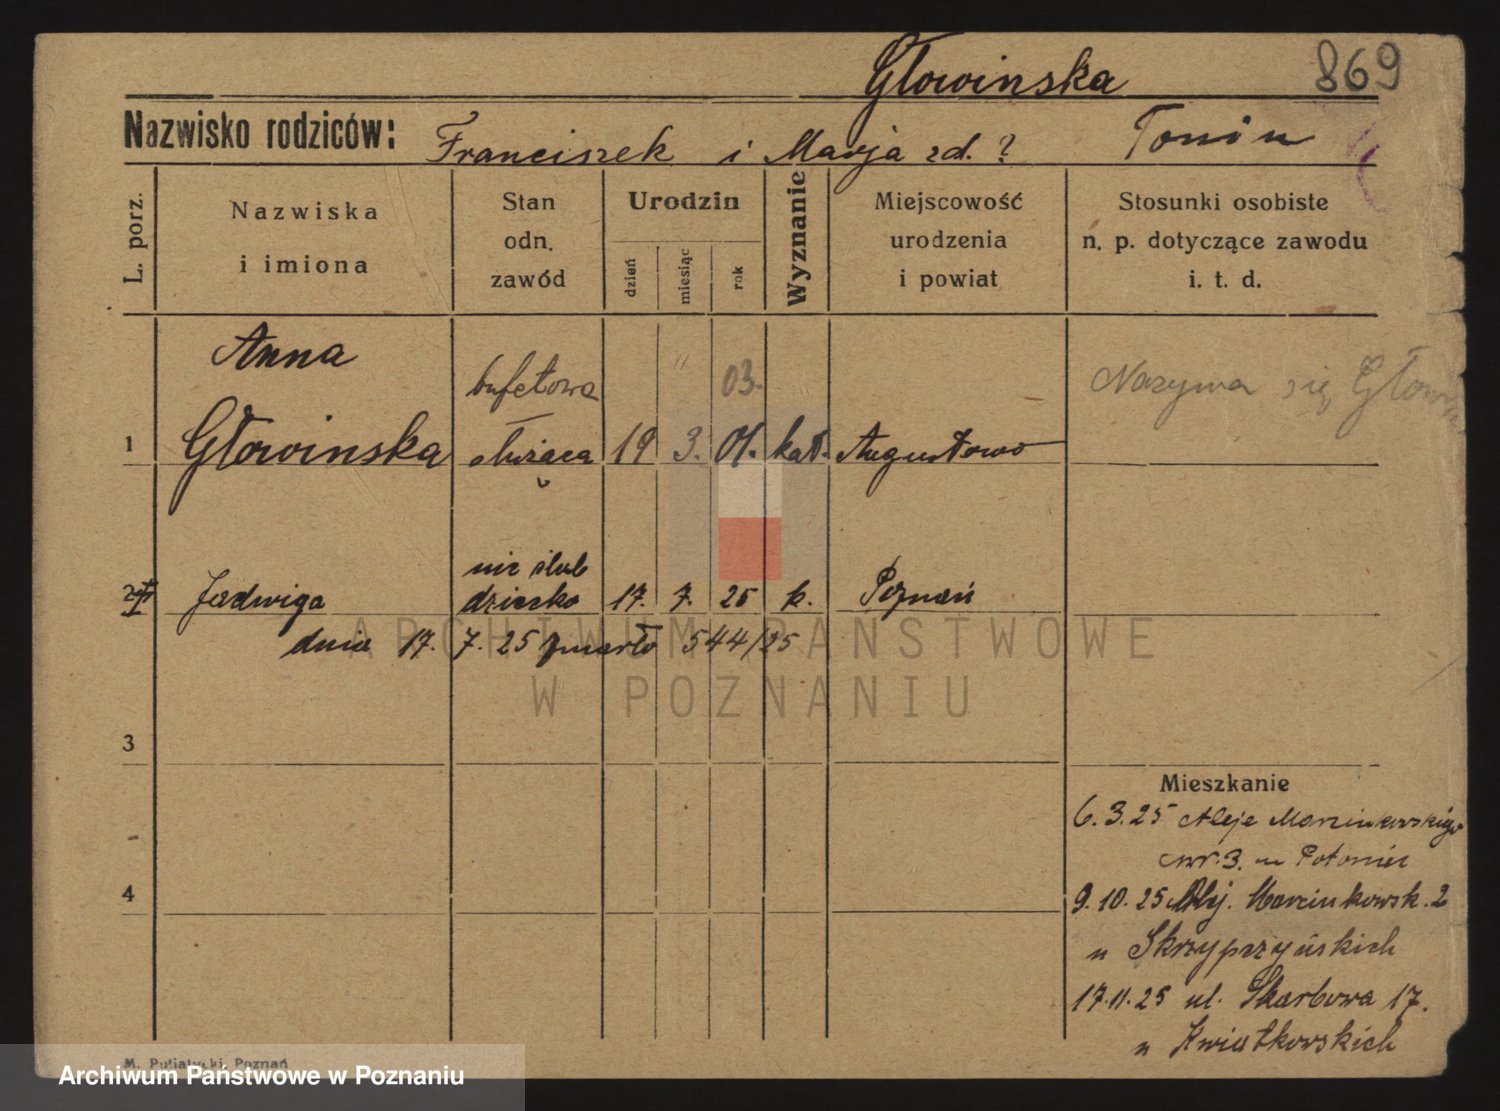 Głowinska 869
Nazwisko rodziców: Franciszek i Marja zd. ? Tonin
L. porz. Nazwiska i imiona Stan odn. zawód Urodzin dzień miesiąc rok Wyznanie Miejscowość urodzenia i powiat Stosunki osobiste n. p. dotyczące zawodu i. t. d.
Anna
bufetowa " 03. Nazywa się Głowin
1 Głowinska służąca 19 3. 01. kat. Augustowo
nie ślub
2 Jadwiga dziecko 17. 7. 25 k. Poznań
dnia 17. 7. 25 zmarło 544/25
ARCHIWUM PAŃSTWOWE
W POZNANIU
3
Mieszkanie
6. 3. 25 Aleje Marcinkowskiego
nr. 3. u
4
9. 10. 25 Alej. Marcinkowsk. 2
u Skrzypczyńskich
17. 11. 25 ul. Skarbowa 17.
u Kwiatkowskich
M. Putiatycki, Poznań
Archiwum Państwowe w Poznaniu